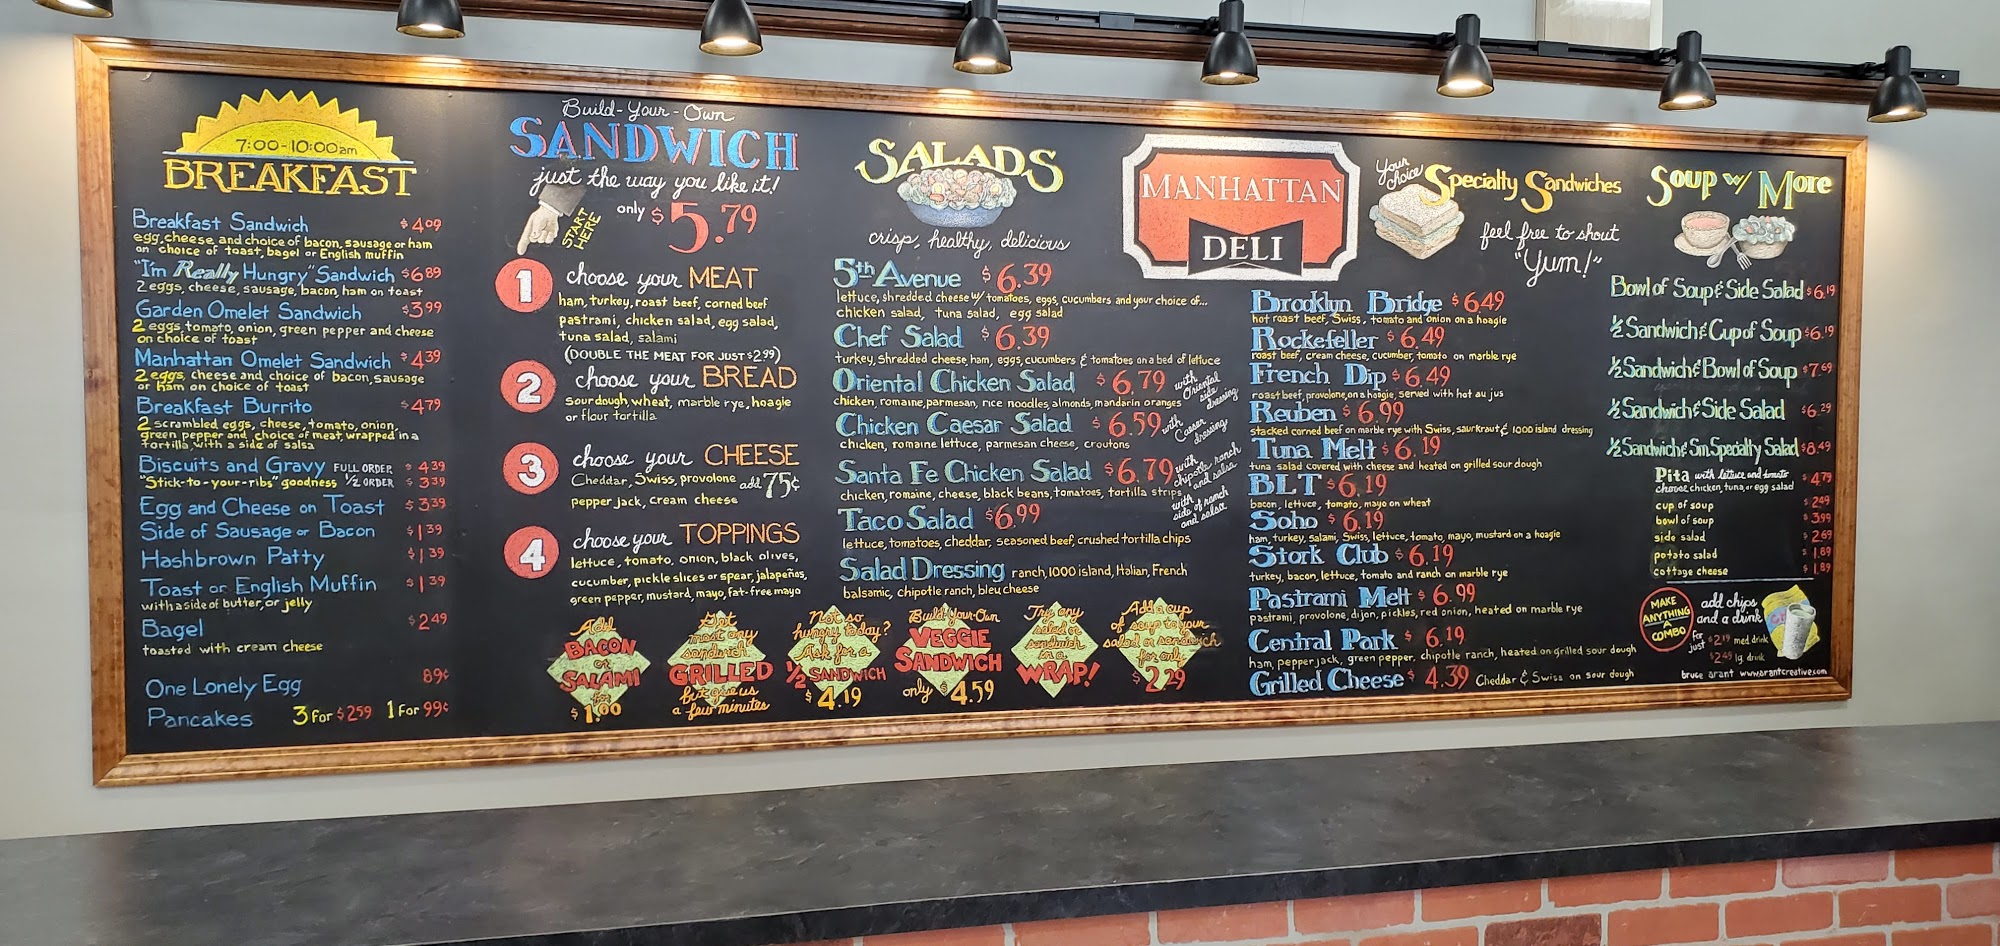 7:00-10:00am
BREAKFAST
Breakfast Sandwich $4.09
egg, cheese and choice of bacon, sausage or ham
on choice of toast, bagel or English muffin
"I'm Really Hungry" Sandwich $6.89
2 eggs, cheese, sausage, bacon, ham on toast
Garden Omelet Sandwich $3.99
2 eggs, tomato, onion, green pepper and cheese
on choice of toast
Manhattan Omelet Sandwich $4.39
2 eggs, cheese and choice of bacon, sausage
or ham on choice of toast
Breakfast Burrito $4.79
2 scrambled eggs, cheese, tomato, onion,
green pepper and choice of meat, wrapped in a
tortilla, with a side of salsa
Biscuits and Gravy FULL ORDER $4.39
"Stick-to-your-ribs" goodness ½ ORDER $3.39
Egg and Cheese on Toast $3.39
Side of Sausage or Bacon $1.39
Hashbrown Patty $1.39
Toast or English Muffin $1.39
with a side of butter, or jelly
Bagel $2.49
toasted with cream cheese
One Lonely Egg 89¢
Pancakes 3 for $2.59 1 for 99¢
Build-Your-Own
SANDWICH
just the way you like it!
START HERE
only $5.79
1 choose your MEAT
ham, turkey, roast beef, corned beef
pastrami, chicken salad, egg salad,
tuna salad, salami
(DOUBLE THE MEAT FOR JUST $2.99)
2 choose your BREAD
Sourdough, wheat, marble rye, hoagie
or flour tortilla
3 choose your CHEESE
Cheddar, Swiss, provolone add 75¢
pepper jack, cream cheese
4 choose your TOPPINGS
lettuce, tomato, onion, black olives,
cucumber, pickle slices or spear, jalapeños,
green pepper, mustard, mayo, fat-free mayo
Add
BACON
or
SALAMI
for
$1.00
Get
most any
sandwich
GRILLED
but give us
a few minutes
Not so
hungry today?
Ask for a
½ SANDWICH
$4.19
Build-Your-Own
VEGGIE
SANDWICH
only $4.59
Try any
salad or
sandwich
in a
WRAP!
Add a cup
of soup to your
salad or sandwich
for only
$2.29
SALADS
crisp, healthy, delicious
5th Avenue $6.39
lettuce, shredded cheese w/ tomatoes, eggs, cucumbers and your choice of...
chicken salad, tuna salad, egg salad
Chef Salad $6.39
turkey, shredded cheese ham, eggs, cucumbers & tomatoes on a bed of lettuce
Oriental Chicken Salad $6.79 with Oriental side dressing
chicken, romaine, parmesan, rice noodles, almonds, mandarin oranges
Chicken Caesar Salad $6.59 with Caesar dressing
chicken, romaine lettuce, parmesan cheese, croutons
Santa Fe Chicken Salad $6.79 with chipotle ranch and salsa
chicken, romaine, cheese, black beans, tomatoes, tortilla strips
Taco Salad $6.99 with side of ranch and salsa
lettuce, tomatoes, cheddar, seasoned beef, crushed tortilla chips
Salad Dressing ranch, 1000 island, Italian, French
balsamic, chipotle ranch, bleu cheese
MANHATTAN
DELI
Your choice
Specialty Sandwiches
feel free to shout
"Yum!"
Brooklyn Bridge $6.49
hot roast beef, Swiss, tomato and onion on a hoagie
Rockefeller $6.49
roast beef, cream cheese, cucumber, tomato on marble rye
French Dip $6.49
roast beef, provolone, on a hoagie, served with hot au jus
Reuben $6.99
stacked corned beef on marble rye with Swiss, saurkraut & 1000 island dressing
Tuna Melt $6.19
tuna salad covered with cheese and heated on grilled sour dough
BLT $6.19
bacon, lettuce, tomato, mayo on wheat
Soho $6.19
ham, turkey, salami, Swiss, lettuce, tomato, mayo, mustard on a hoagie
Stork Club $6.19
turkey, bacon, lettuce, tomato and ranch on marble rye
Pastrami Melt $6.99
pastrami, provolone, dijon, pickles, red onion, heated on marble rye
Central Park $6.19
ham, pepper jack, green pepper, chipotle ranch, heated on grilled sour dough
Grilled Cheese $4.39 Cheddar & Swiss on sour dough
Soup w/ More
Bowl of Soup & Side Salad $6.19
½ Sandwich & Cup of Soup $6.19
½ Sandwich & Bowl of Soup $7.69
½ Sandwich & Side Salad $6.29
½ Sandwich & Sm. Specialty Salad $8.49
Pita with lettuce and tomato $4.79
choose chicken, tuna, or egg salad
cup of soup $2.49
bowl of soup $3.99
side salad $2.69
potato salad $1.89
cottage cheese $1.89
MAKE
ANYTHING
A
COMBO
add chips
and a drink
for just $2.19 med drink
$2.49 lg. drink
bruce arant www.arantcreative.com